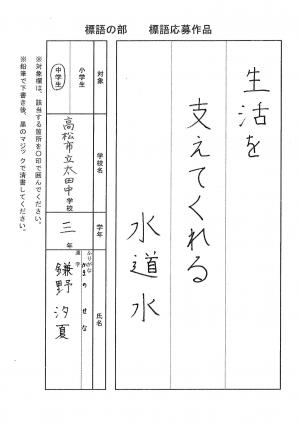 標語の部　標語応募作品
生活を
支えてくれる
水道水
対象
小学生
中学生
学校名
高松市立太田中学校
学年
三年
氏名
ふりがな
かまの　せな
漢字
鎌野　汐夏
※対象欄は、該当する箇所を〇印で囲んでください。
※鉛筆で下書き後、黒のマジックで清書してください。